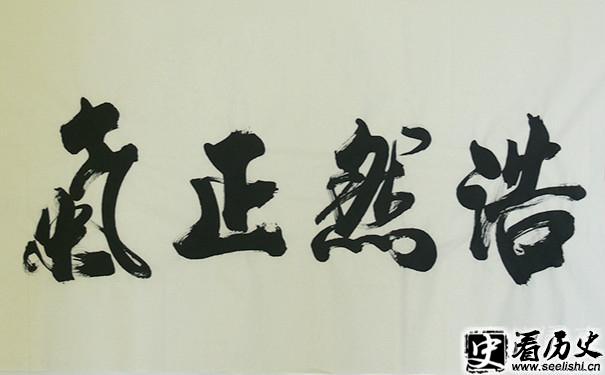 浩然正氣
史 看历史
www.seelishi.cn